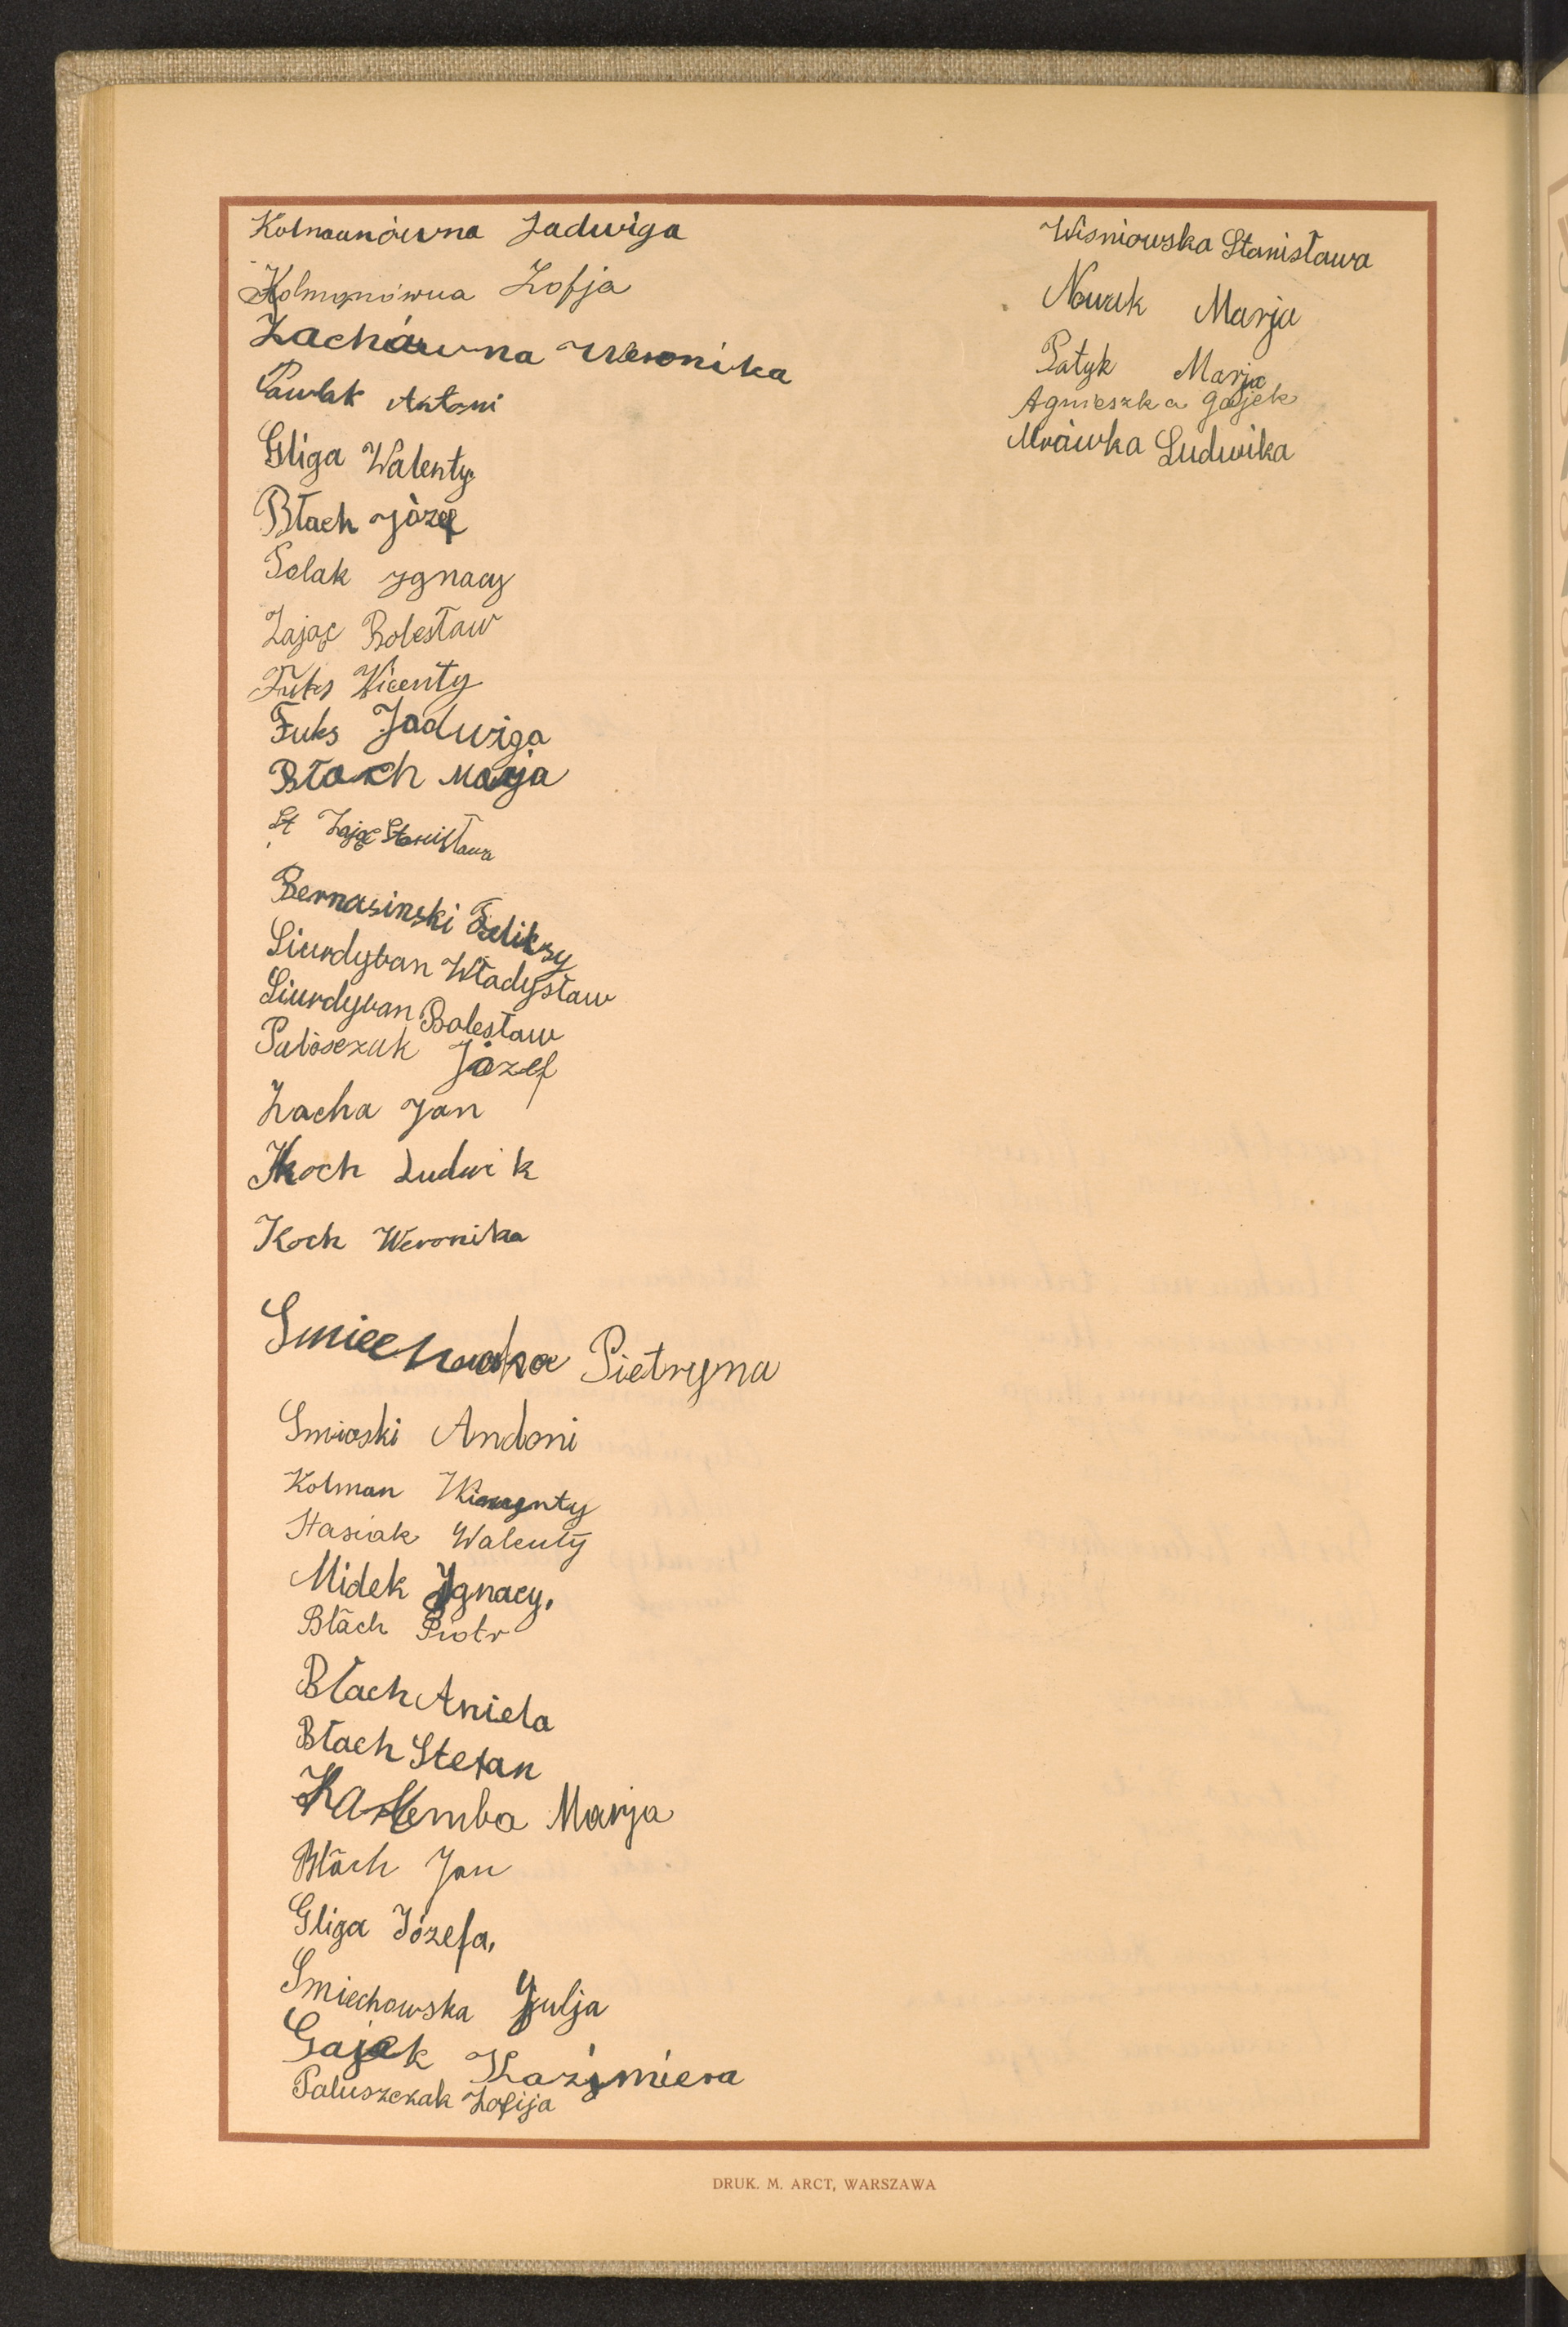 Kolmanówna Jadwiga
Kolmanówna Zofja
Zachówna Weronika
Pawlak Antoni
Gliga Walenty
Błach Józef
Polak Ygnacy
Zając Bolesław
Fuks Wicenty
Fuks Jadwiga
Błach Marja
St Zając Stanisława
Bernasinski Feliksy
Siurdyban Władysław
Siurdyban Bolesław
Józef
Zacha Jan
Koch Ludwik
Koch Weronika
Pietryna
Smioski Andoni
Kolman
Stasiak Walenty
Midek Ygnacy.
Błach Piotr
Błach Aniela
Błach Stefan
Marja
Błach Jan
Gliga Józefa,
Smiechowska Julja
Gajek Kazimiera
Paluszczak Zofija
Wisniowska Stanisława
Nowak Marja
Patyk Marja
Agnieszka Gajek
Mrówka Ludwika
DRUK. M. ARCT, WARSZAWA